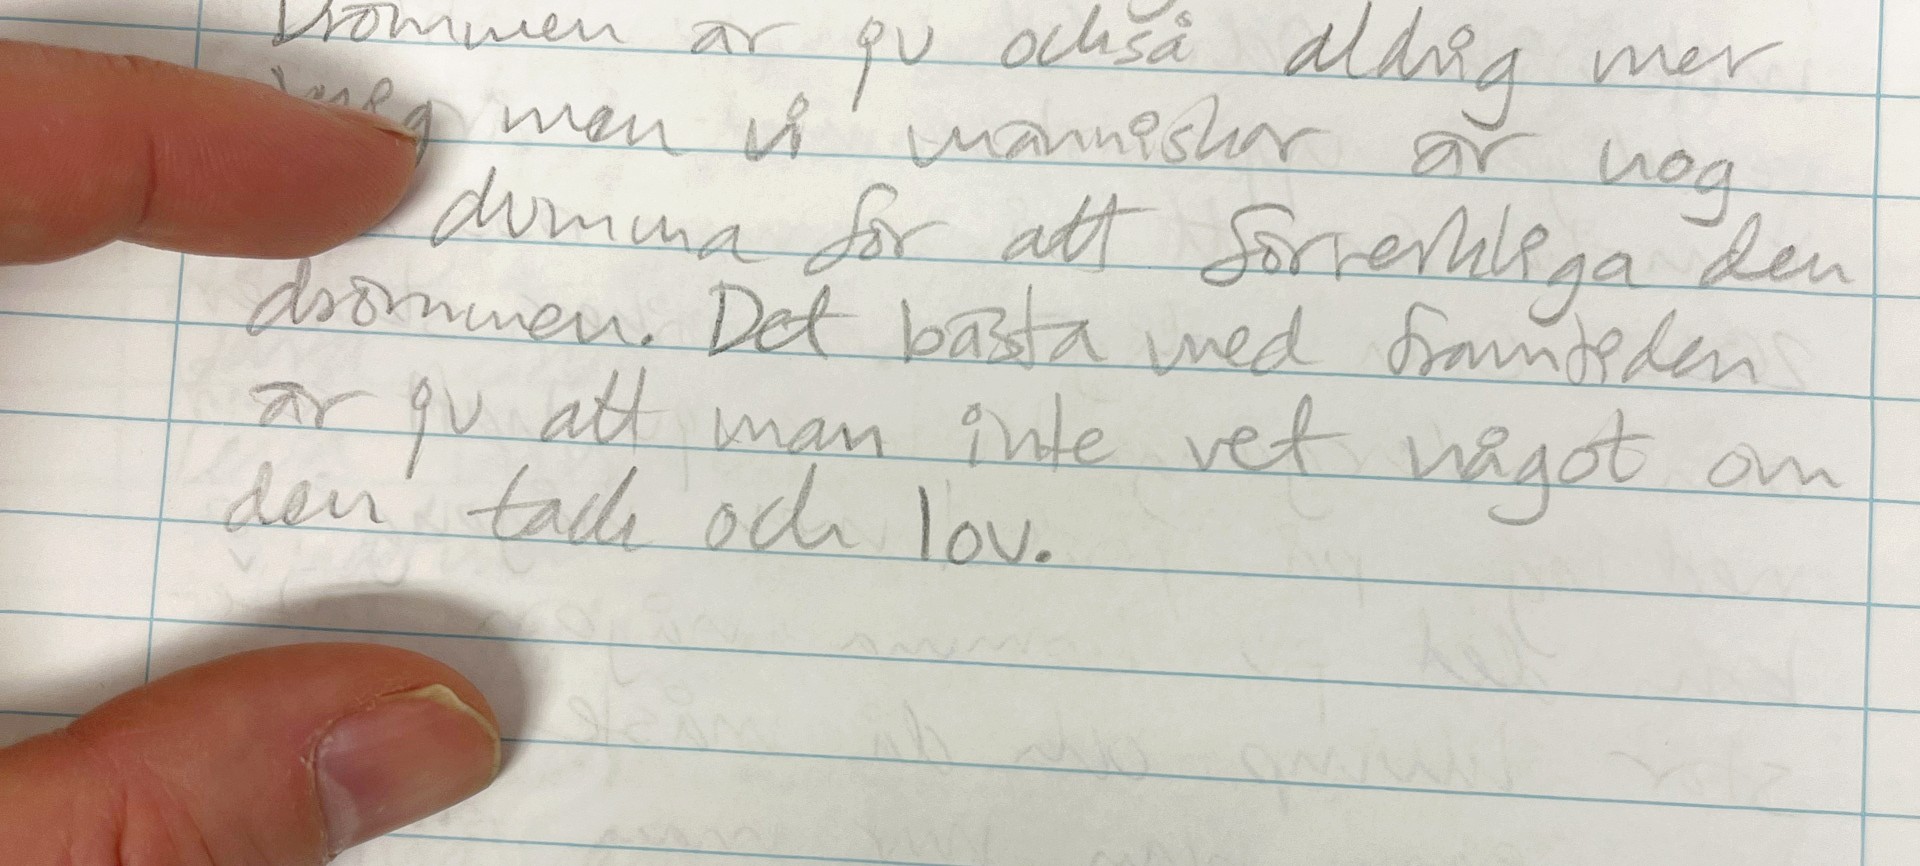 Drömmen är ju också aldrig mer
men vi människor är nog
dumma för att förverkliga den
drömmen. Det bästa med framtiden
är ju att man inte vet något om
den tack och lov.